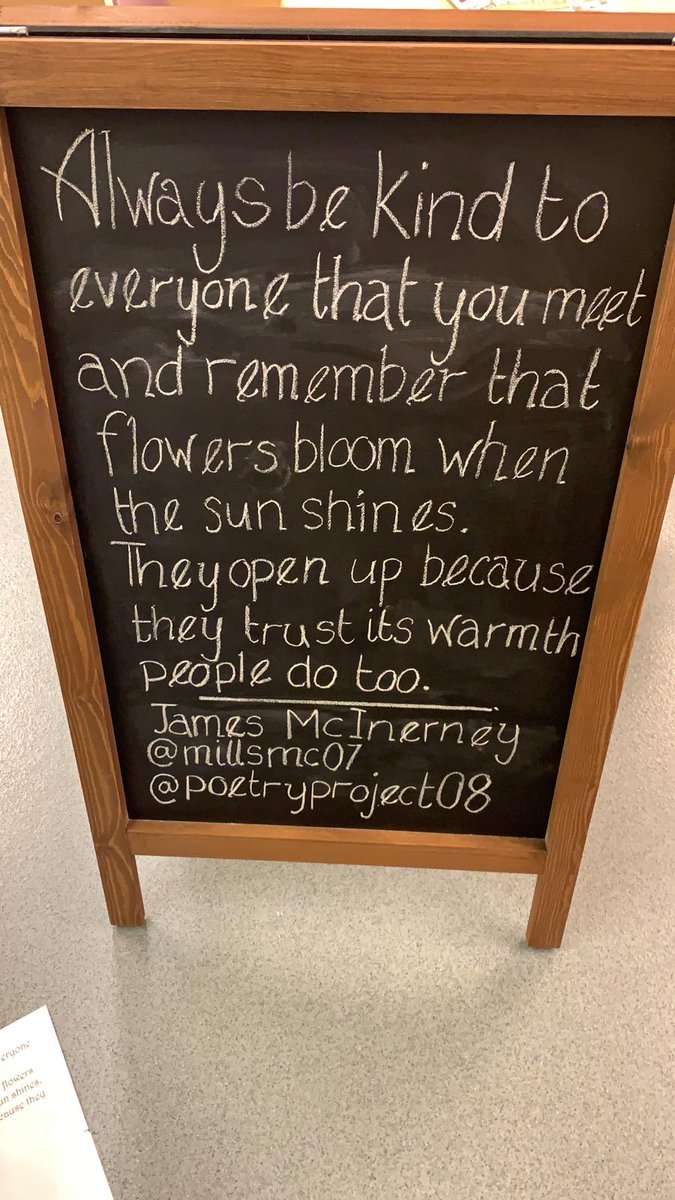 Always be kind to
everyone that you meet
and remember that
flowers bloom when
the sun shines.
They open up because
they trust its warmth
people do too.
James McInerney
@millsmc07
@poetryproject08
flowers
shines.
they